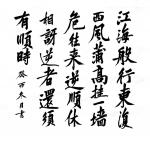 江海船行東復
西風蒲高挂一檣
危往来逆順休
相訝逆者還須
有順時
癸酉冬月書